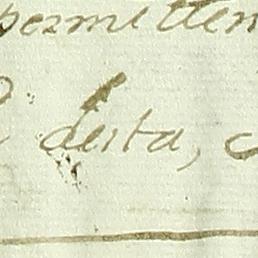 permitten
desta,